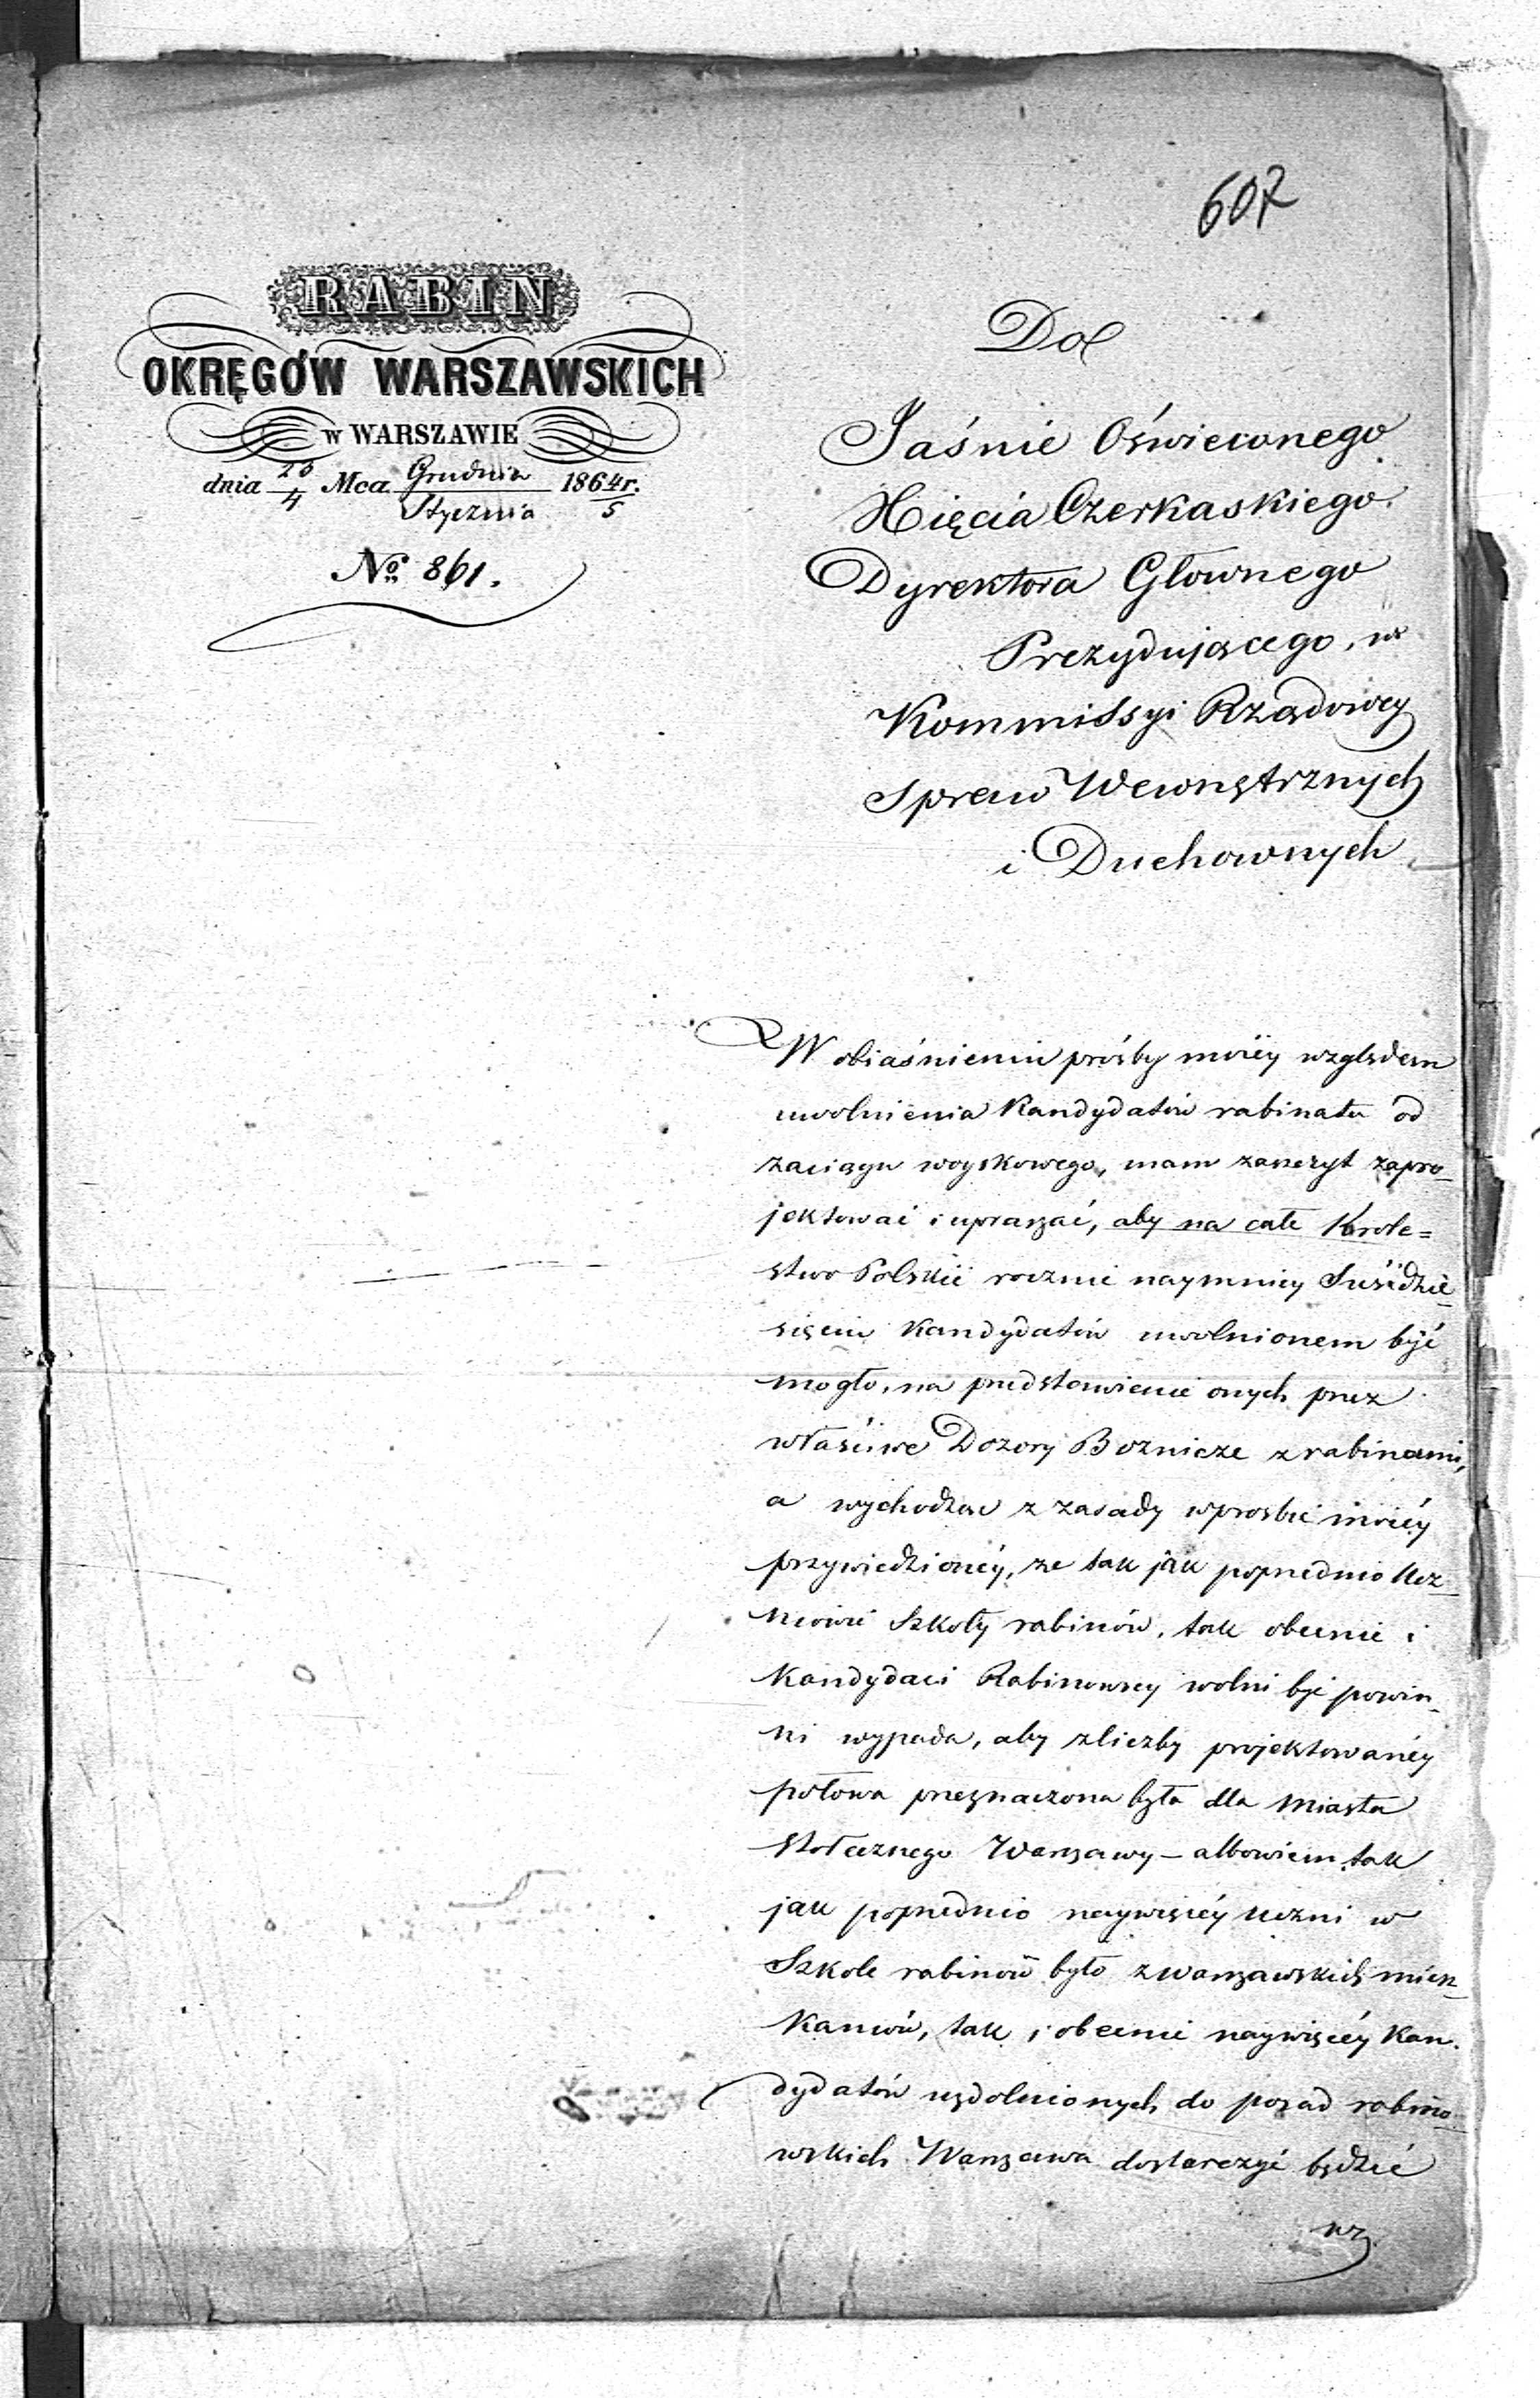 607
RABIN
OKRĘGÓW WARSZAWSKICH
w WARSZAWIE
dnia 23/4 Mca Grudnia/Stycznia 1864/5 r.
No 861.
Do
Jaśnie Oświeconego
Xięcia Czerkaskiego
Dyrektora Głownego
Prezydującego, w
Kommissyi Rządowey
Spraw Wewnętrznych
i Duchownych
W obiaśnieniu prośby moiéy względem
uwolnienia Kandydatów rabinatu od
zaciągu woyskowego, mam zaszczyt zapro-
jektować i upraszać, aby na całe Krole=
stwo Polskie rocznie naymniey Sześćdzie-
sięciu Kandydatów uwolnionem być
mogło, na przedstawienie onych przez
właściwe Dozory Boznicze z rabinami,
a wychodząc z zasady w prosbie moiéy
przywiedzionéy, ze tak jak poprzednio Ucz-
niowie Szkoły rabinów, tak obecnie i
Kandydaci Rabinowscy wolni być powin-
ni wypada, aby z liczby projektowanéy
połowa przeznaczona była dla Miasta
stołecznego Warszawy – albowiem tak
jak poprzednio naywięcéy Uczni w
Szkole rabinów było z warszawskich miesz-
kańców, tak i obecnie naywięcéy Kan-
dydatów uzdolnionych do posad rabino-
wskich Warszawa dostarczyć będzie